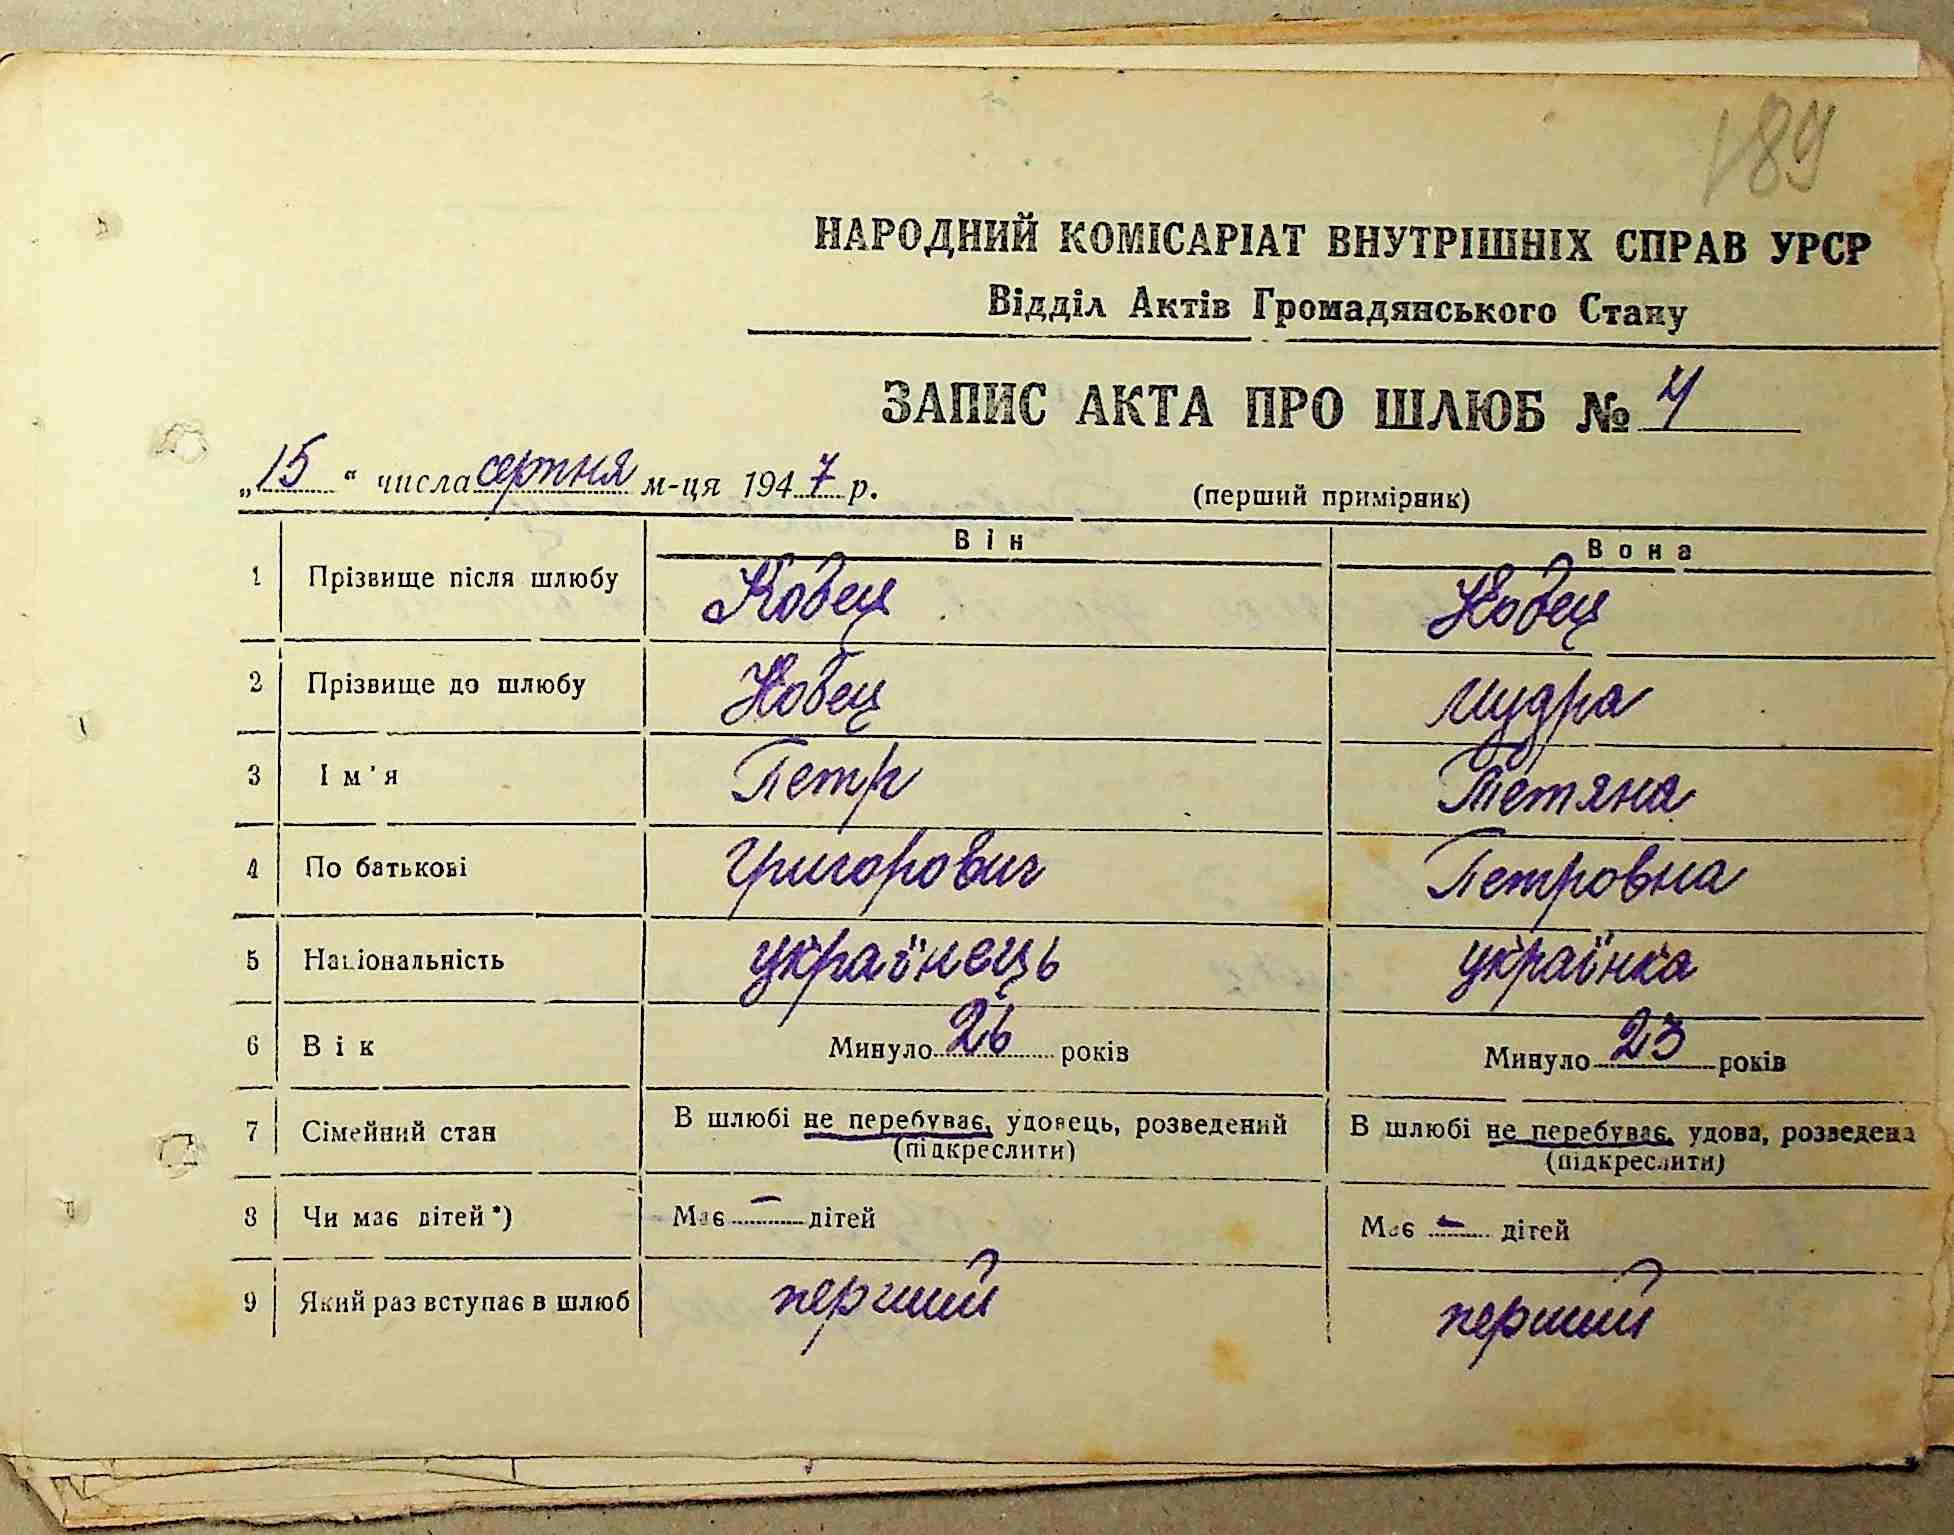 189
НАРОДНИЙ КОМІСАРІАТ ВНУТРІШНІХ СПРАВ УРСР
Відділ Актів Громадянського Стану
ЗАПИС АКТА ПРО ШЛЮБ № 4
„15“ числа серпня м-ця 1947 р. (перший примірник)
Він Вона
1 Прізвище після шлюбу Кобец Кобец
2 Прізвище до шлюбу Кобец Мудра
3 Ім'я Петр Тетяна
4 По батькові Григорович Петровна
5 Національність українець українка
6 Вік Минуло 26 років Минуло 23 років
7 Сімейний стан В шлюбі не перебуває, удовець, розведений В шлюбі не перебуває, удова, розведена
(підкреслити) (підкреслити)
8 Чи має дітей*) Має — дітей Має — дітей
9 Який раз вступає в шлюб перший перший